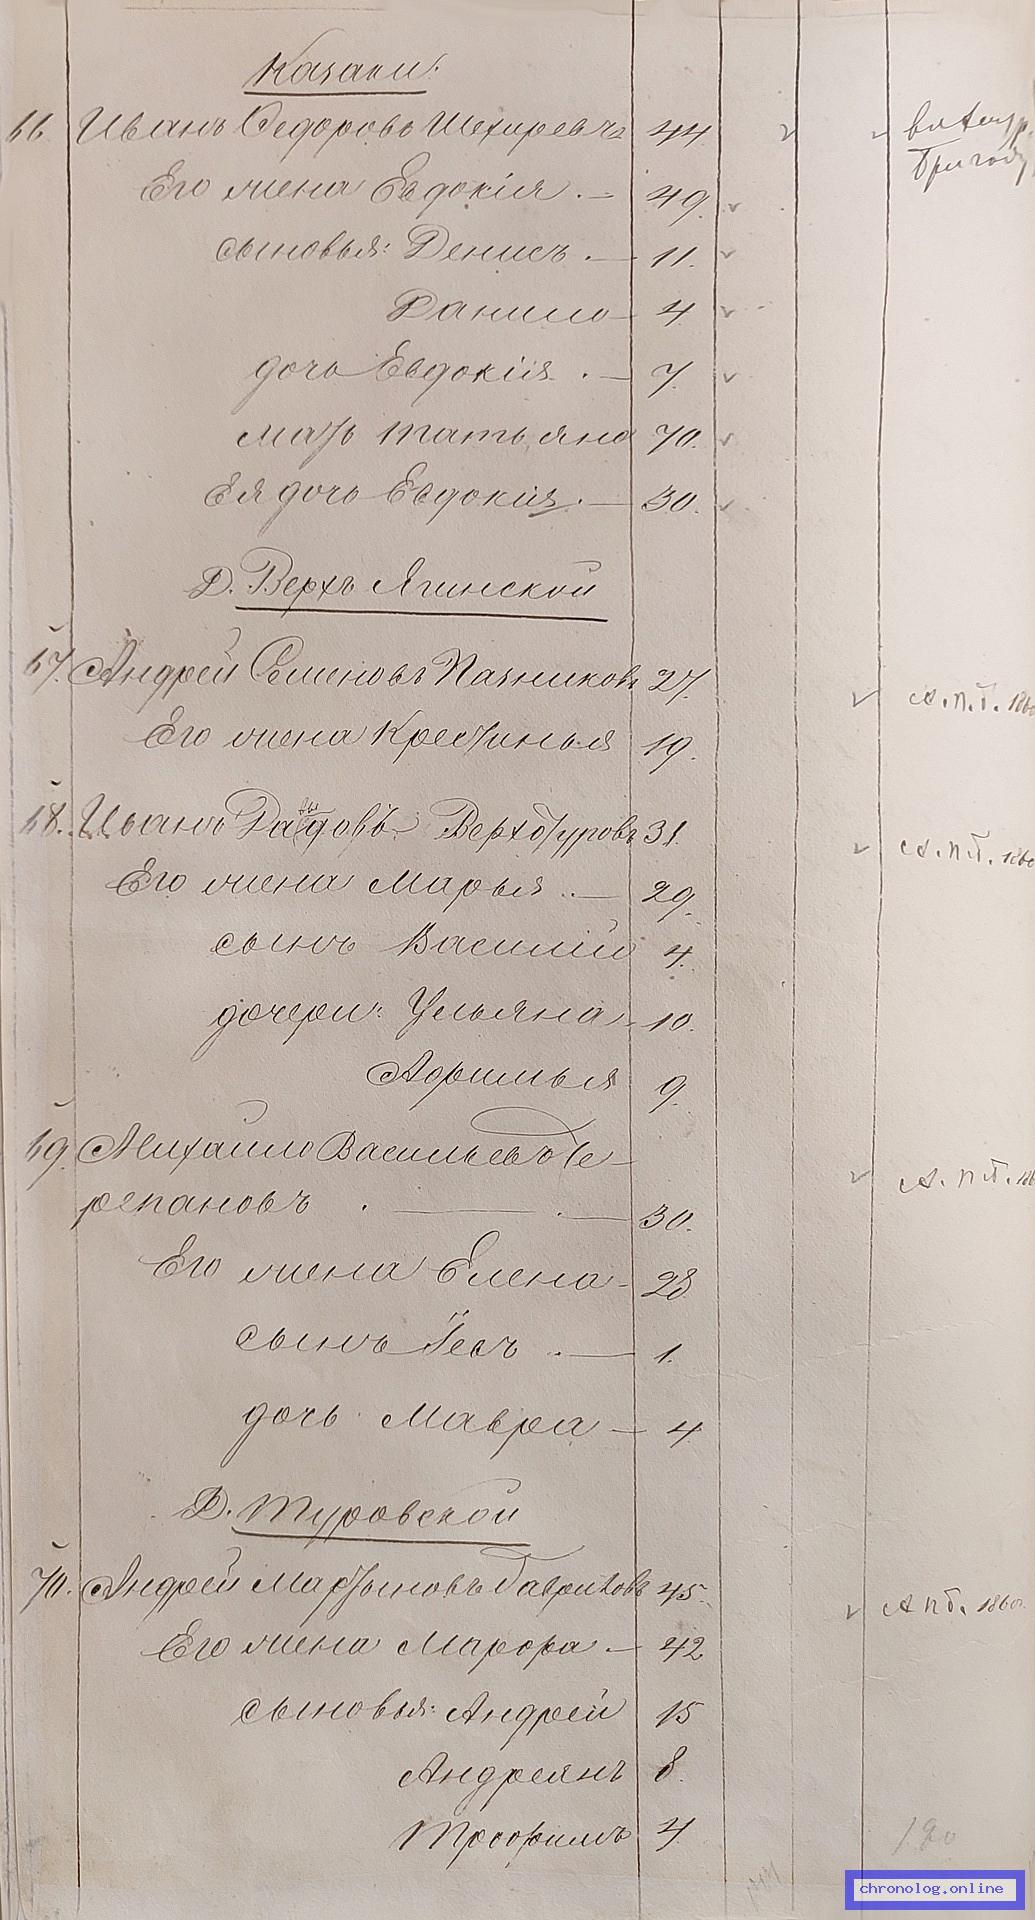 Казаки.
66. Иванъ Федоровъ 44. въ Амур.
Его жена Евдокія . — 49. бригаду
сыновья: Денисъ . — 11.
Данило — 4.
дочь Евдокія . — 7.
мать Татьяна 70.
Ея дочь Евдокія . — 30.
Д. Верхъ Ягинской
67. Андрей Семеновъ Пачниковъ 27. А. п. б. 1860
Его жена Крестинья 19.
68. Иванъ Верхотуровъ 31. А. п. б. 1860
Его жена Марья . — 29.
сынъ Василій 4.
дочери: Ульяна — 10.
Афимья 9.
69. Михайло Васильевъ Че-
репановъ . — . — 30. А. п. б. 186
Его жена Елена — 28.
сынъ . — 1.
дочь Мавра — 4
Д. Туровской
70. Андрей Мартыновъ Гавриловъ 45. А п б. 1860
Его жена — 42
сыновья: Андрей 15
Андреянъ 8.
Трофимъ 4.
chronolog.online